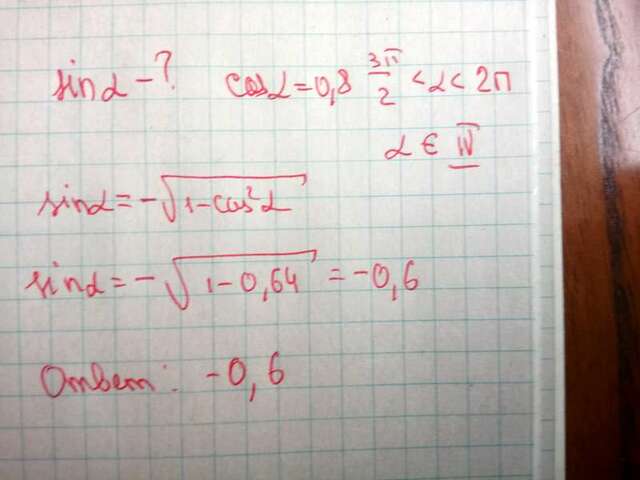 sinα - ? cosα = 0,8 3π/2 < α < 2π
α ∈ IV
sinα = -√(1-cos²α)
sinα = -√(1-0,64) = -0,6
Ответ: -0,6